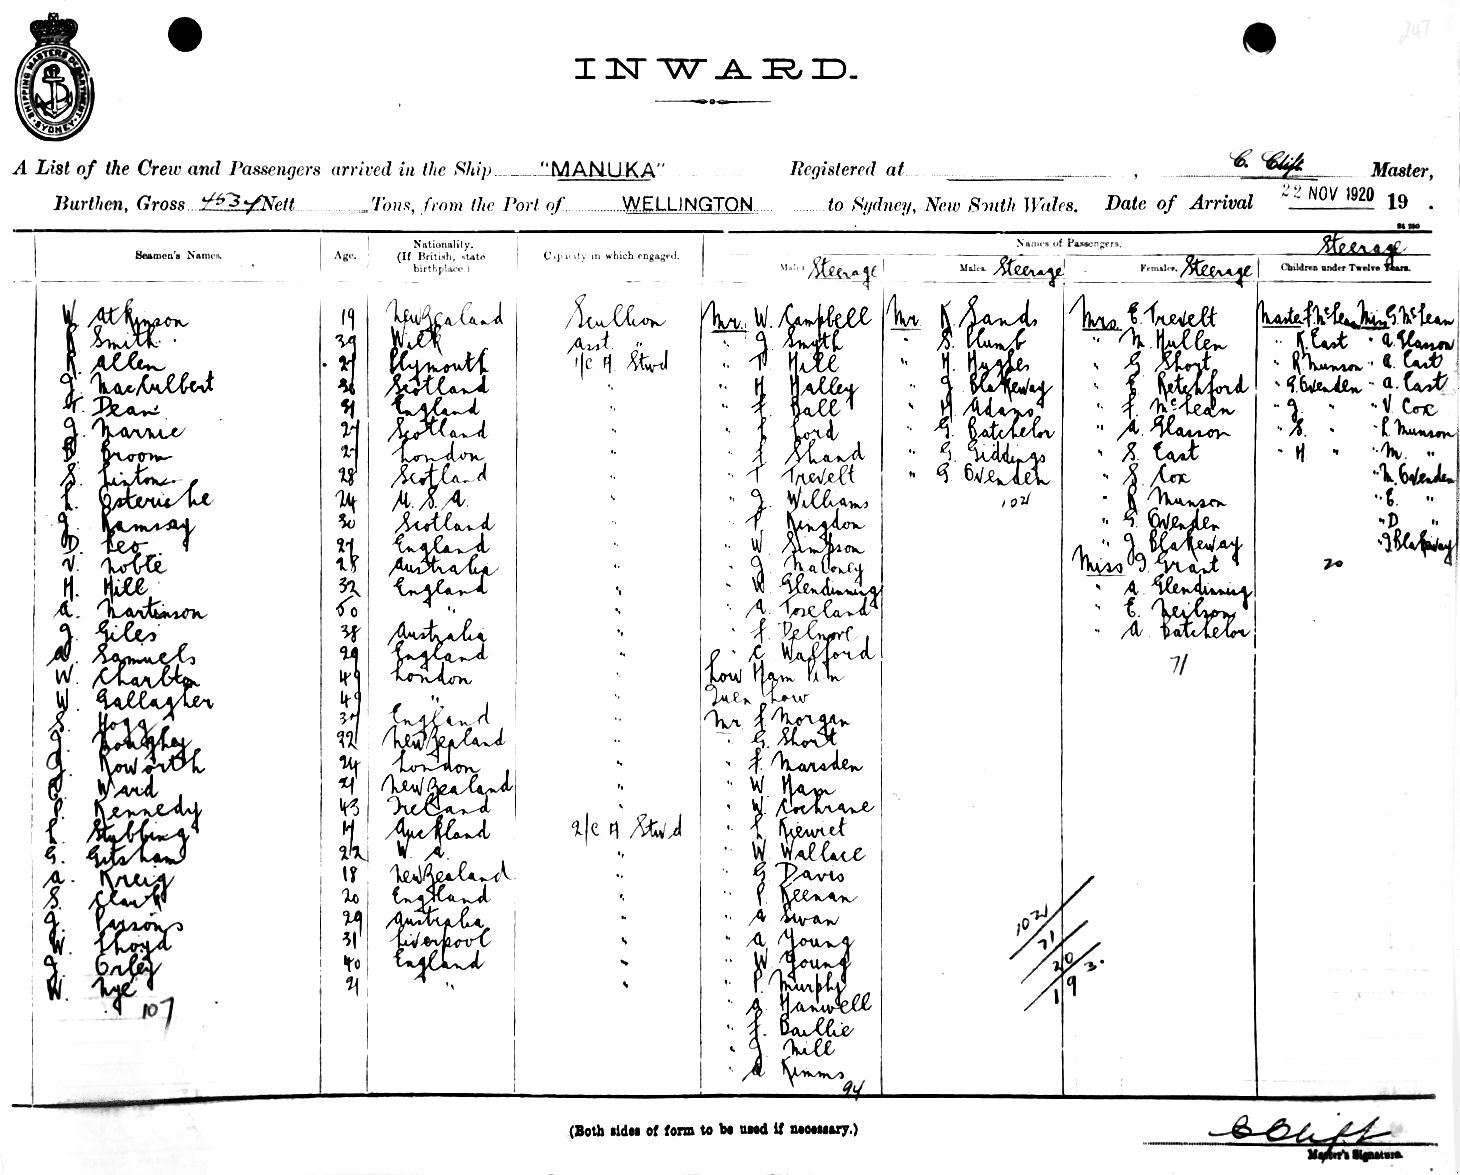 247
SHIPPING MASTERS DEPARTMENT SYDNEY
INWARD.
A List of the Crew and Passengers arrived in the Ship "MANUKA" Registered at , C. Clift Master,
Burthen, Gross 4534 Nett Tons, from the Port of WELLINGTON to Sydney, New South Wales. Date of Arrival 22 NOV 1920 19 .
Seamen's Names. Age. Nationality. (If British, state birthplace.) Capacity in which engaged. Names of Passengers.
Males Steerage Males. Steerage Females. Steerage Steerage Children under Twelve Years.
W Atkinson 19 New Zealand Scullion Mr. W. Campbell Mr K Sands Mrs E. Trevelt Master F. McLean Miss G. McLean
R Smith 39 Wick Asst. " " J Smyth " S. Plumb " M Hullen " K East " A Glasson
R Allen 27 Plymouth 1/C A Stwd " T Hill " H. Hughes " G Short " R Munson " A. East
J. MacCulbert 36 Scotland " " H Halley " J Blakeway " E Retchford " G. Ovenden " A. East
Dean 31 England " " F. Ball " H Adams " F. McLean " J. " " V Cox
J. Marnie 27 Scotland " " Ford " G. Batchelor " A. Glasson " S. " " L Munson
Broom 27 London " " Shand " G Giddings " S. East " H " " M. "
S. Linton 28 Scotland " " T Trevelt " G Ovenden " S. Cox " M. Ovenden
L. Osteriche 24 U.S.A. " " J Williams 102 " R Munson " E. "
J. Ramsay 30 Scotland " " P Kingdon " G. Ovenden " D "
D. Leo 27 England " " W Simpson " J Blakeway " J Blakeway
V. Noble 28 Australia " " J. Maloney Miss J Grant 20
H. Hill 32 England " " W Glendinning " A Glendinning
A. Martinson 50 " " " A Toseland " E. Neilson
J Giles 38 Australia " " F Delmore " A Batchelor
Samuels 29 England " " C Walford 71
W. Charlton 49 London " Low Ham Pim
W. Gallagher 49 " " Quen Low
S. Hogg 37 England " Mr F Morgan
J. Doughey 32 New Zealand " " G. Short
Roworth 24 London " " F Marsden
Ward 21 New Zealand " " W Ham
P. Kennedy 43 Ireland " " W. Cochrane
L. Stubbing 17 Auckland 2/C A Stwd " L Kiewiet
G. Gitsham 22 W. A. " " W Wallace
A. Kreig 18 New Zealand " " G Davis
S. Clark 20 England " " P Keenan
J. Parsons 29 Australia " " A Swan
W. Lhoyd 31 Liverpool " " A Young
J Orley 40 England " " W Young
W. Nye 21 " " " P. Murphy
107 " A Hanwell
" F. Baillie
" J Mill
" A Kimms
94
102
71
20
193.
(Both sides of form to be used if necessary.)
C Clift
Master's Signature.